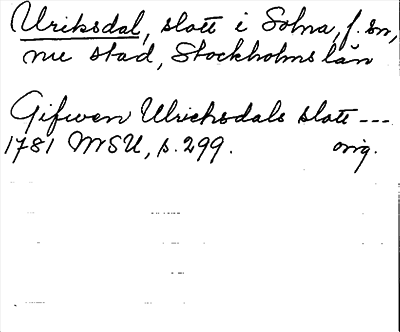 Uriksdal, slott i Solna, f. sn,
nu stad, Stockholms län
Gifwen Ulrichsdals slott ---
1781 MSU, s. 299. orig.